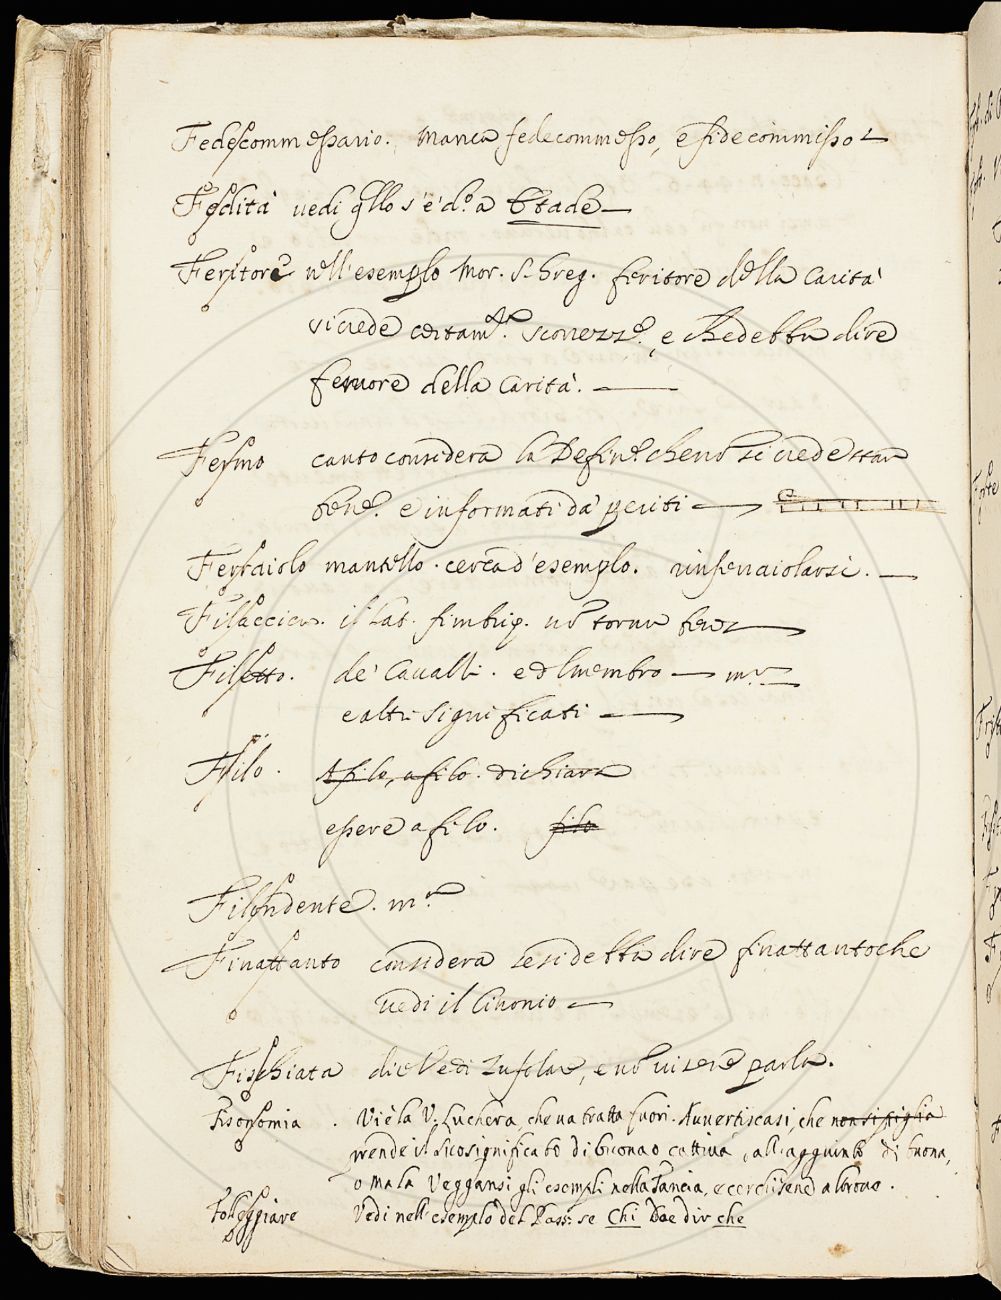 Fedescommessario. Manca fedecommesso, e fidecommisso
Fedita vedi qllo s'è d.o a Etade
Feritore nell'esemplo Mor. S. Greg. feritore della Carità
si crede certam.te scorrezz.e, e che debba dire
fervore della Carità.
Fermo canto considera la Defin.e che nō si crede stia
bene. e informati da periti
Ferraiolo mantello. cerca d'esemplo. rinferraiolarsi.
Filaccica. il Lat. fimbrie. nō torna bene
Filetto. de' Cavalli. e del membro m.a
e altri significati
Filo. A filo, a filo. dichiara
essere a filo. filo
Filondente. m.a
Finattanto considera se si debba dire finattantoche
vedi il Cinonio
Fischiata dice Vedi Zufolare, e nō vi se ne parla.
Fisonomia. Vi è la V. Luchera, che va tratta fuori. Avvertiscasi, che non si piglia
prende il suo significato di buona o cattiva, all'aggiunto di buona,
o mala Veggansi gli esempli nella Tancia, e cerchisene altrove.
Folleggiare Vedi nell'esemplo del Pass: se Chi Dee dir che